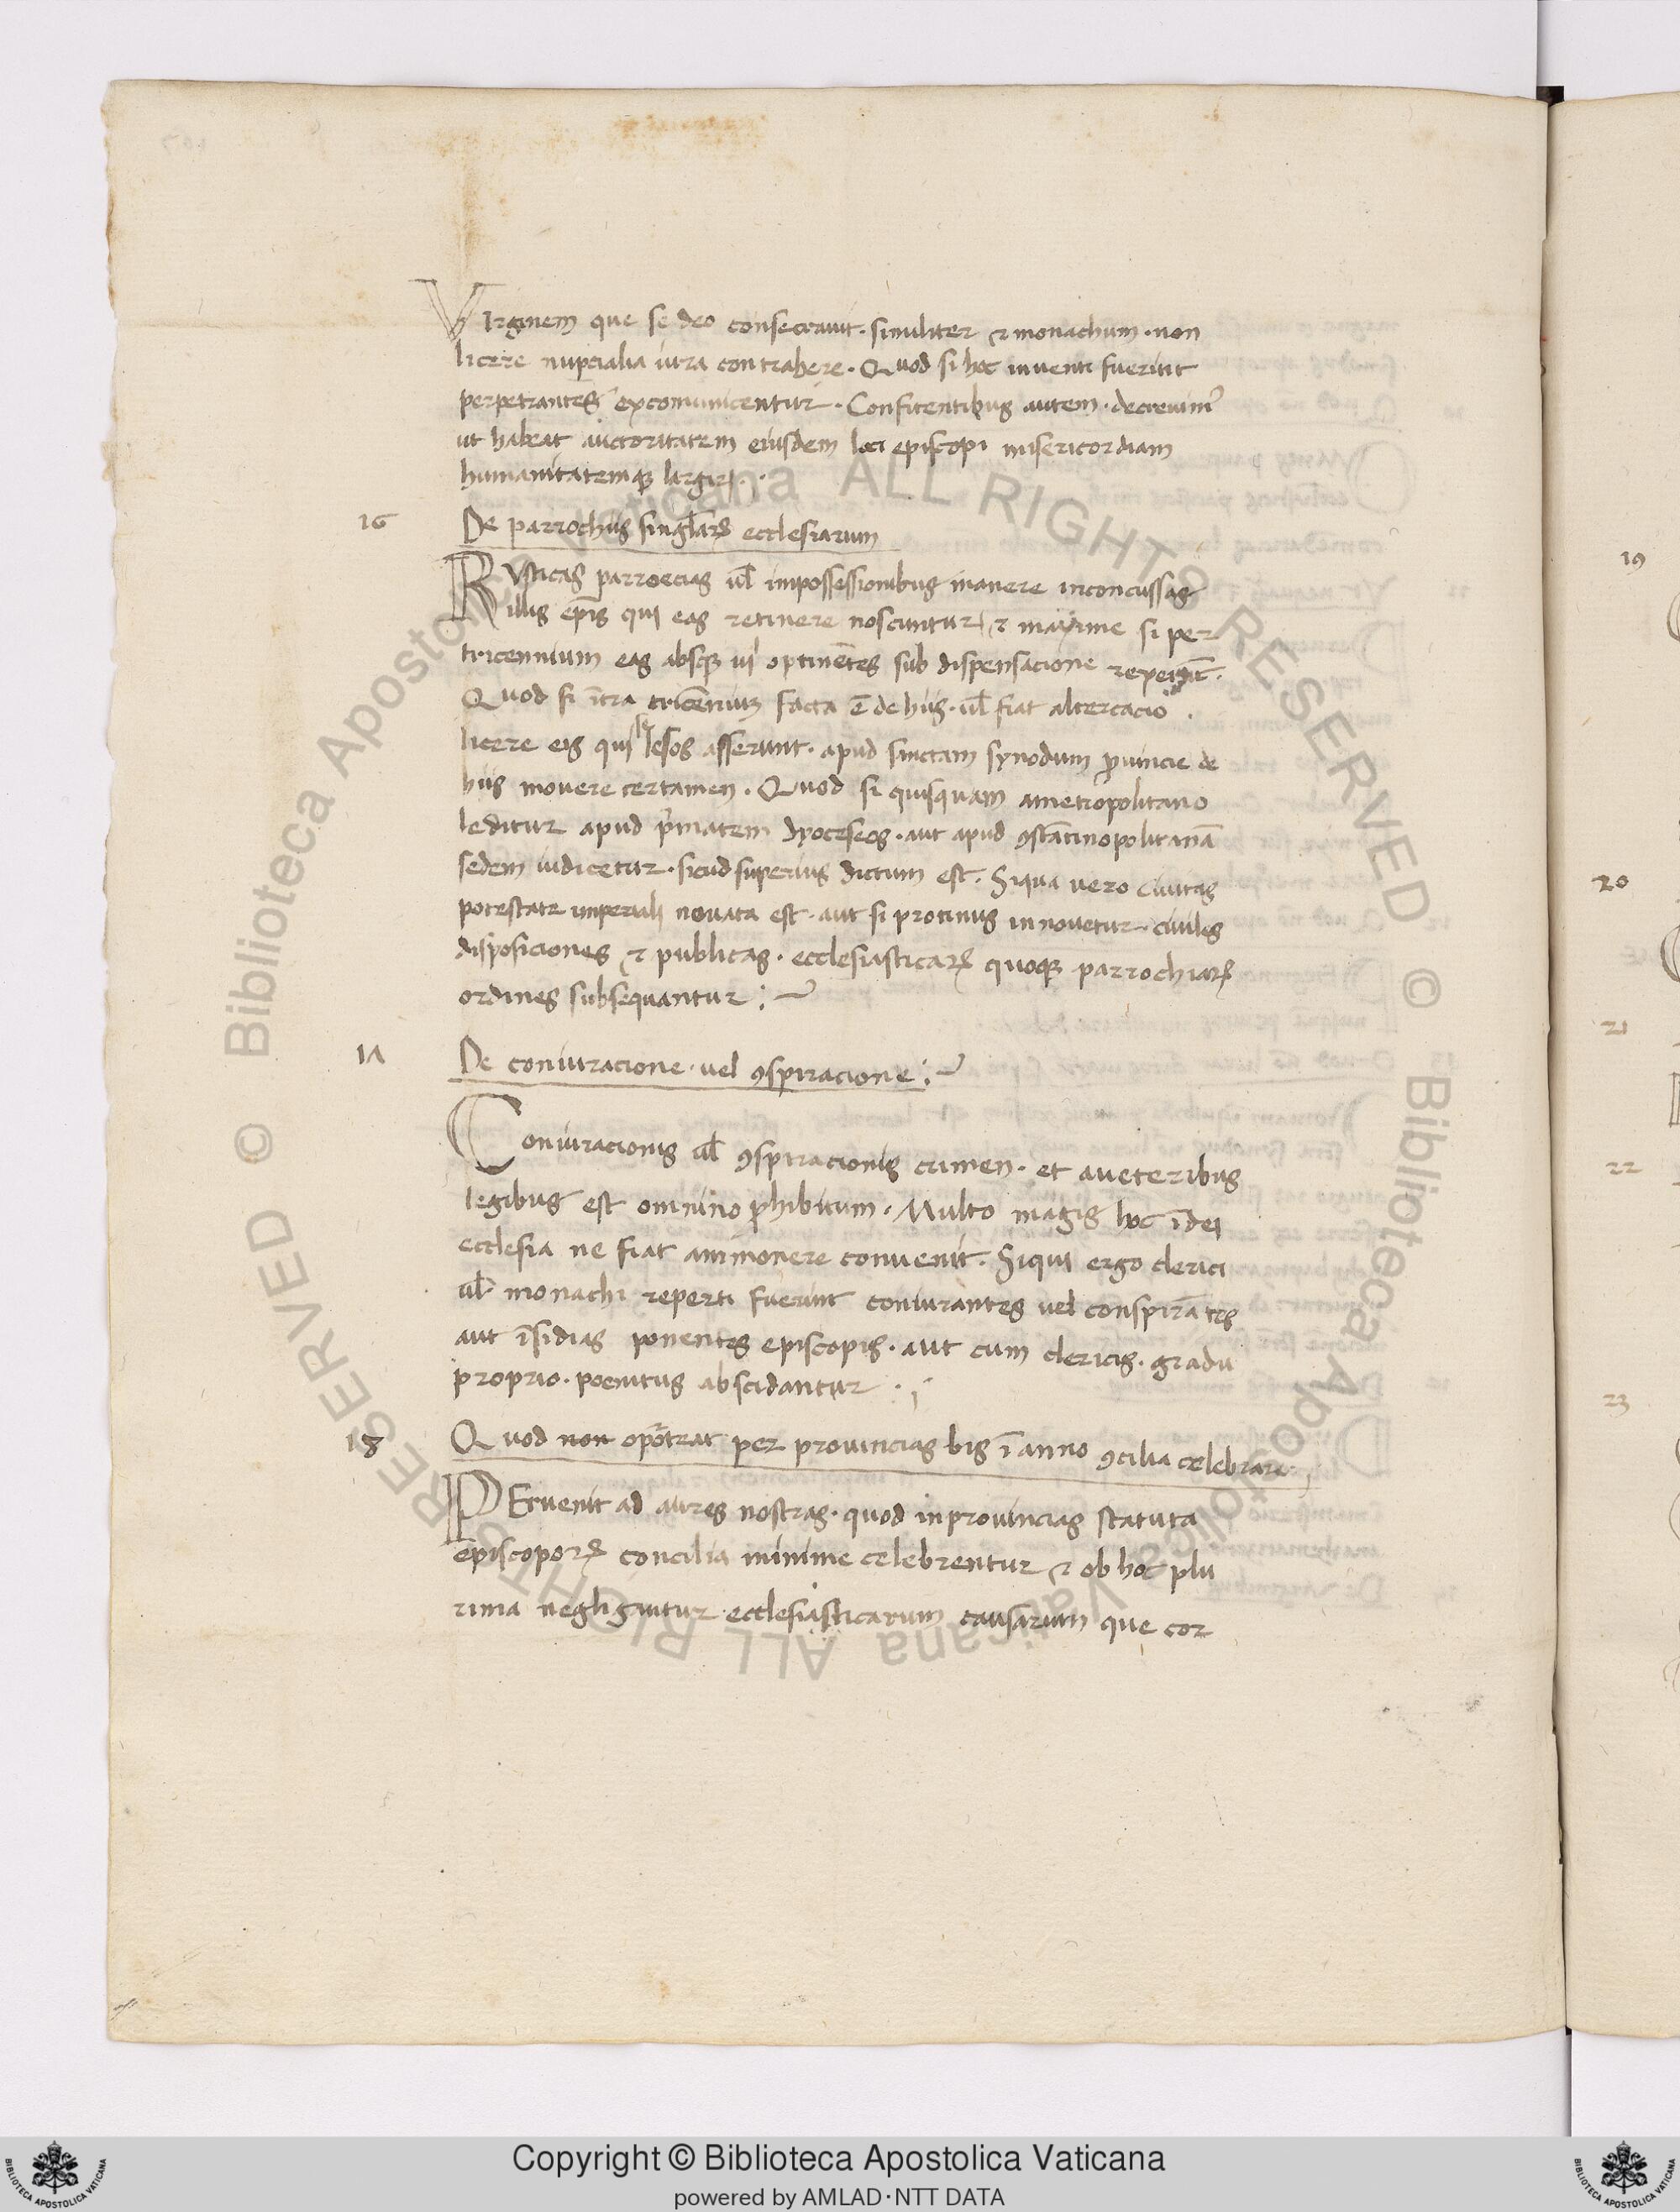 VIrginem que se deo consecravit. similiter & monachum. non
licere nupcialia iura contrahere. Quod si hoc inventi fuerint
perpetrantes excomunicentur. Confitentibus autem. decreuim⁹
ut habeat auctoritatem eiusdem loci episcopi misericordiam
humanitatemqꝫ largiri.
16 De parrochiis singl̅arꝫ ecclesiarum
RVsticas parroecias ul̅ impossessionibus manere inconcussas
illis ep̅is qui eas retinere noscuntur & maxime si per
tricennium eas absqꝫ ui optine̅tes sub dispensacione
Quod si i̅tra trice̅nium facta e̅ de hiis. ul̅ fiat altercacio.
licere eis qui se lesos asserunt. apud sanctam synodum ꝓuincie de
hiis movere certamen. Quod si quisquam ametropolitano
leditur apud p̍matem dyoceseos. aut apud ꝯsta̅tinopolitana̅
sedem iudicetur. sicud superius dictum est. Siqua vero civitas
potestate imperiali novata est. aut si protinus innovetur. civiles
disposiciones & publicas. ecclesiasticarꝫ quoqꝫ parrochiarꝫ
ordines subsequantur :~
17 De coniuracione. vel ꝯspiracione :~
Coniuracionis ul̅ ꝯspiracionis crimen. et aveteribus
legibus est omnino ꝓhibitum. Multo magis hoc i̅dei
ecclesia ne fiat ammonere convenit. Siqui ergo clerici
ul̅ monachi reperti fuerint coniurantes vel conspira̅tes
aut i̅sidias ponentes episcopis. aut cum clericis. gradu
proprio. poenitus abscidantur
18 Quod non per provincias bis i̅ anno ꝯcilia celebrari
PErvenit ad aures nostras. quod inprovincias statuta
episcoporꝫ concilia minime celebrentur & ob hoc plu
rima negligantur ecclesiasticarum causarum que cor
19
20
21
22
23
© Biblioteca Apostolica Vaticana ALL RIGHTS RESERVED © Biblioteca Apostolica Vaticana ALL RIGHTS RESERVED
Copyright © Biblioteca Apostolica Vaticana
powered by AMLAD·NTT DATA
BIBLIOTECA APOSTOLICA VATICANA
BIBLIOTECA APOSTOLICA VATICANA